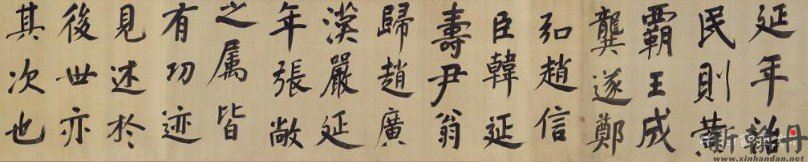 延年治
民則黃
霸王成
龔遂鄭
弘趙信
臣韓延
壽尹翁
歸趙廣
漢嚴延
年張敞
之属皆
有功迹
見述於
後世亦
其次也
新翰丹
www.xinhandan.net